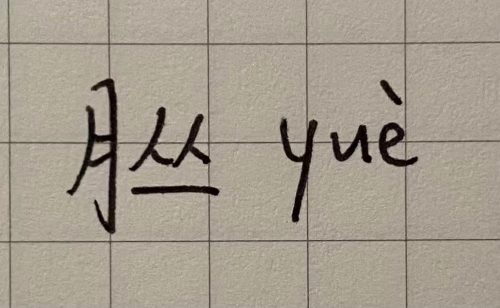 月丛 yuè